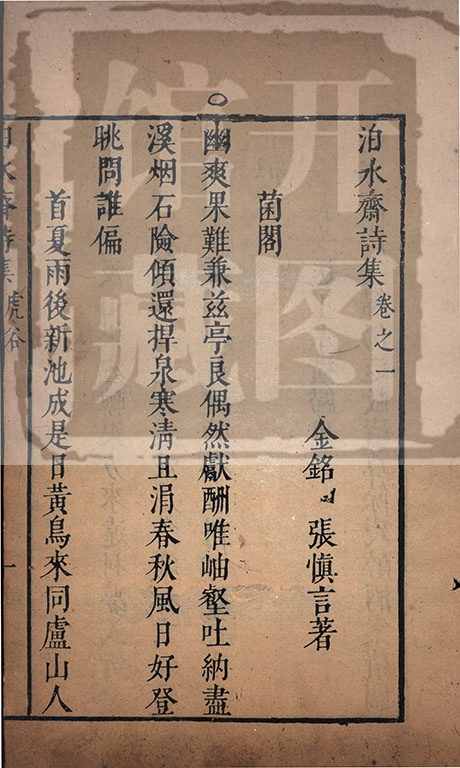 泊水齋詩集卷之一
金銘張愼言著
菌閣
幽爽果難兼茲亭良偶然獻酬唯岫壑吐納盡
溪烟石險傾還捍泉寒淸且涓春秋風日好登
眺問誰偏
首夏雨後新池成是日黃鳥來同盧山人
泊水齋詩集 虎谷 一
開圖
館藏